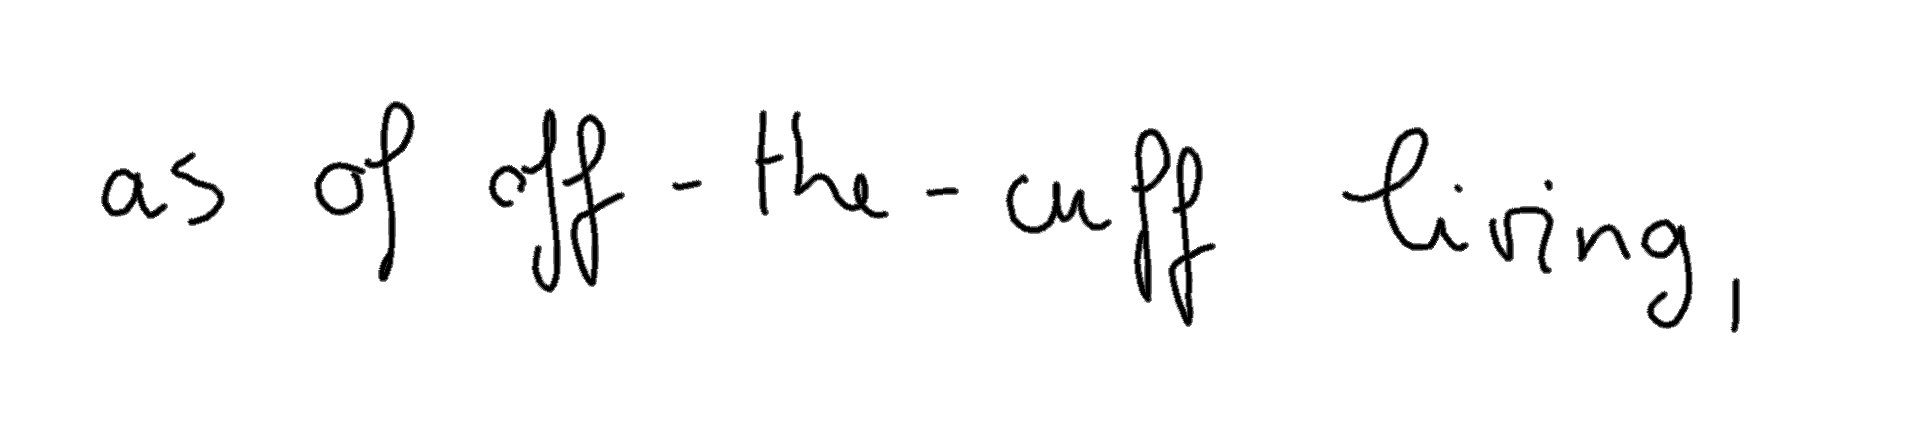 as of off-the-cuff living,